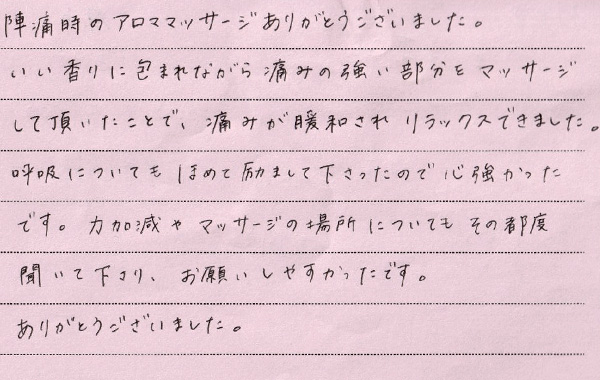 陣痛時のアロママッサージありがとうございました。
いい香りに包まれながら痛みの強い部分をマッサージ
して頂いたことで、痛みが暖和されリラックスできました。
呼吸についてもほめて励まして下さったので心強かった
です。力加減やマッサージの場所についてもその都度
聞いて下さり、お願いしやすかったです。
ありがとうございました。